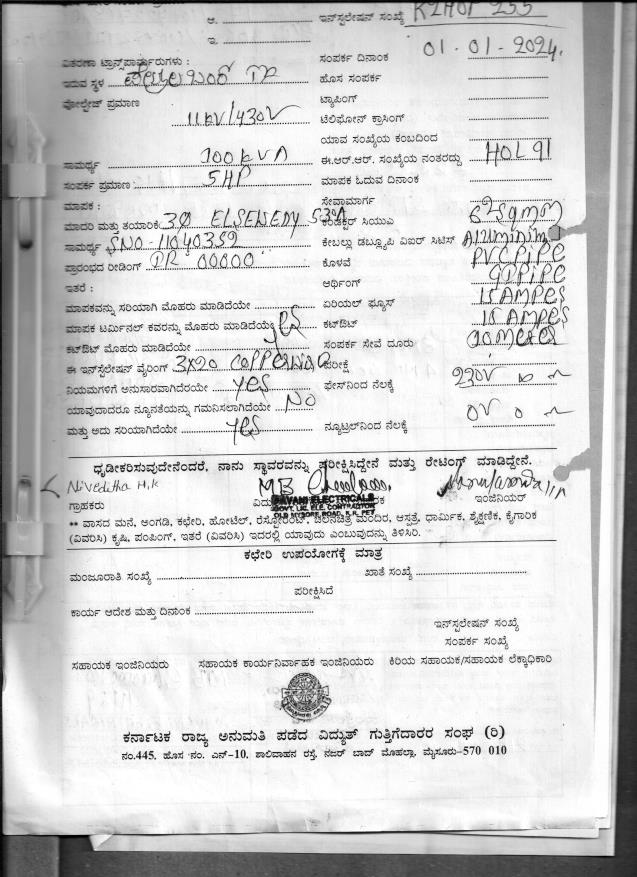 ಆ. ಇನ್‌ಸ್ಟಲೇಷನ್ ಸಂಖ್ಯೆ
ಇ.
ವಿತರಣಾ ಟ್ರಾನ್ಸ್‌ಫಾರ್ಮರುಗಳು : ಸಂಪರ್ಕ ದಿನಾಂಕ 01-01-2024.
ಇರುವ ಸ್ಥಳ ಹೊಸ ಸಂಪರ್ಕ
ವೋಲ್ಟೇಜ್ ಪ್ರಮಾಣ ಟ್ಯಾಪಿಂಗ್
11kV/430V ಟೆಲಿಫೋನ್ ಕ್ರಾಸಿಂಗ್
ಯಾವ ಸಂಖ್ಯೆಯ ಕಂಬದಿಂದ
ಸಾಮರ್ಥ್ಯ 100kVA ಈ.ಆರ್.ಆರ್. ಸಂಖ್ಯೆಯ ನಂತರದ್ದು HOL91
ಸಂಪರ್ಕ ಪ್ರಮಾಣ 5HP ಮಾಪಕ ಓದುವ ದಿನಾಂಕ
ಮಾಪಕ : ಸೇವಾಮಾರ್ಗ
ಮಾದರಿ ಮತ್ತು ತಯಾರಿಕೆ 3Ø 5-30A ಕಂಡಕ್ಟರ್ ಸಿಯುವಿ
ಸಾಮರ್ಥ್ಯ SNO-11040352 ಕೇಬಲ್ಲು ಡಬ್ಲ್ಯೂಪಿ ವಿಐರ್ ಸಿಟಿಸ್ Aluminium
ಪ್ರಾರಂಭದ ರೀಡಿಂಗ್ IR 00000 ಕೊಳವೆ PVCPIPE
ಇತರೆ : ಆರ್ಥಿಂಗ್ GIPIPE
ಮಾಪಕವನ್ನು ಸರಿಯಾಗಿ ಮೊಹರು ಮಾಡಿದೆಯೇ ಏರಿಯಲ್ ಫ್ಯೂಸ್ 15AMPES
ಮಾಪಕ ಟರ್ಮಿನಲ್ ಕವರನ್ನು ಮೊಹರು ಮಾಡಿದೆಯೇ yes ಕಟ್‌ಔಟ್ 15AMPES
ಕಟ್‌ಔಟ್ ಮೊಹರು ಮಾಡಿದೆಯೇ ಸಂಪರ್ಕ ಸೇವೆ ದೂರು
ಈ ಇನ್‌ಸ್ಟಲೇಷನ್ ವೈರಿಂಗ್ 3x20 ಪರೀಕ್ಷೆ
ನಿಯಮಗಳಿಗೆ ಅನುಸಾರವಾಗಿದೆರಯೇ yes ಫೇಸ್‌ನಿಂದ ನೆಲಕ್ಕೆ 230V
ಯಾವುದಾದರೂ ನ್ಯೂನತೆಯನ್ನು ಗಮನಿಸಲಾಗಿದೆಯೇ No
ಮತ್ತು ಅದು ಸರಿಯಾಗಿದೆಯೇ yes ನ್ಯೂಟ್ರಲ್‌ನಿಂದ ನೆಲಕ್ಕೆ 0V
ಧೃಡೀಕರಿಸುವುದೇನೆಂದರೆ, ನಾನು ಸ್ಥಾವರವನ್ನು ಪರೀಕ್ಷಿಸಿದ್ದೇನೆ ಮತ್ತು ರೇಟಿಂಗ್ ಮಾಡಿದ್ದೇನೆ.
Niveditha H.K
ಗ್ರಾಹಕರು ಇಂಜಿನಿಯರ್
PAVANI ELECTRICALS
GOVT. LIC. ELE. CONTRACTOR
OLD MYSORE ROAD, K.R. PET
** ವಾಸದ ಮನೆ, ಅಂಗಡಿ, ಕಛೇರಿ, ಹೋಟೆಲ್, ರೆಸ್ಟೋರೆಂಟ್, ಚಲನಚಿತ್ರ ಮಂದಿರ, ಆಸ್ಪತ್ರೆ, ಧಾರ್ಮಿಕ, ಶೈಕ್ಷಣಿಕ, ಕೈಗಾರಿಕೆ
(ವಿವರಿಸಿ) ಕೃಷಿ, ಪಂಪಿಂಗ್, ಇತರೆ (ವಿವರಿಸಿ) ಇದರಲ್ಲಿ ಯಾವುದು ಎಂಬುವುದನ್ನು ತಿಳಿಸಿರಿ.
ಕಛೇರಿ ಉಪಯೋಗಕ್ಕೆ ಮಾತ್ರ
ಮಂಜೂರಾತಿ ಸಂಖ್ಯೆ ಖಾತೆ ಸಂಖ್ಯೆ
ಪರೀಕ್ಷಿಸಿದೆ
ಕಾರ್ಯ ಆದೇಶ ಮತ್ತು ದಿನಾಂಕ
ಇನ್‌ಸ್ಟಲೇಷನ್ ಸಂಖ್ಯೆ
ಸಂಪರ್ಕ ಸಂಖ್ಯೆ
ಸಹಾಯಕ ಇಂಜಿನಿಯರು ಸಹಾಯಕ ಕಾರ್ಯನಿರ್ವಾಹಕ ಇಂಜಿನಿಯರು ಕಿರಿಯ ಸಹಾಯಕ/ಸಹಾಯಕ ಲೆಕ್ಕಾಧಿಕಾರಿ
ಕರ್ನಾಟಕ ರಾಜ್ಯ ಅನುಮತಿ ಪಡೆದ ವಿದ್ಯುತ್ ಗುತ್ತಿಗೆದಾರರ ಸಂಘ (ರಿ)
ನಂ.445, ಹೊಸ ನಂ. ಎನ್-10, ಶಾಲಿವಾಹನ ರಸ್ತೆ, ನಜರ್ ಬಾದ್ ಮೊಹಲ್ಲಾ, ಮೈಸೂರು-570 010